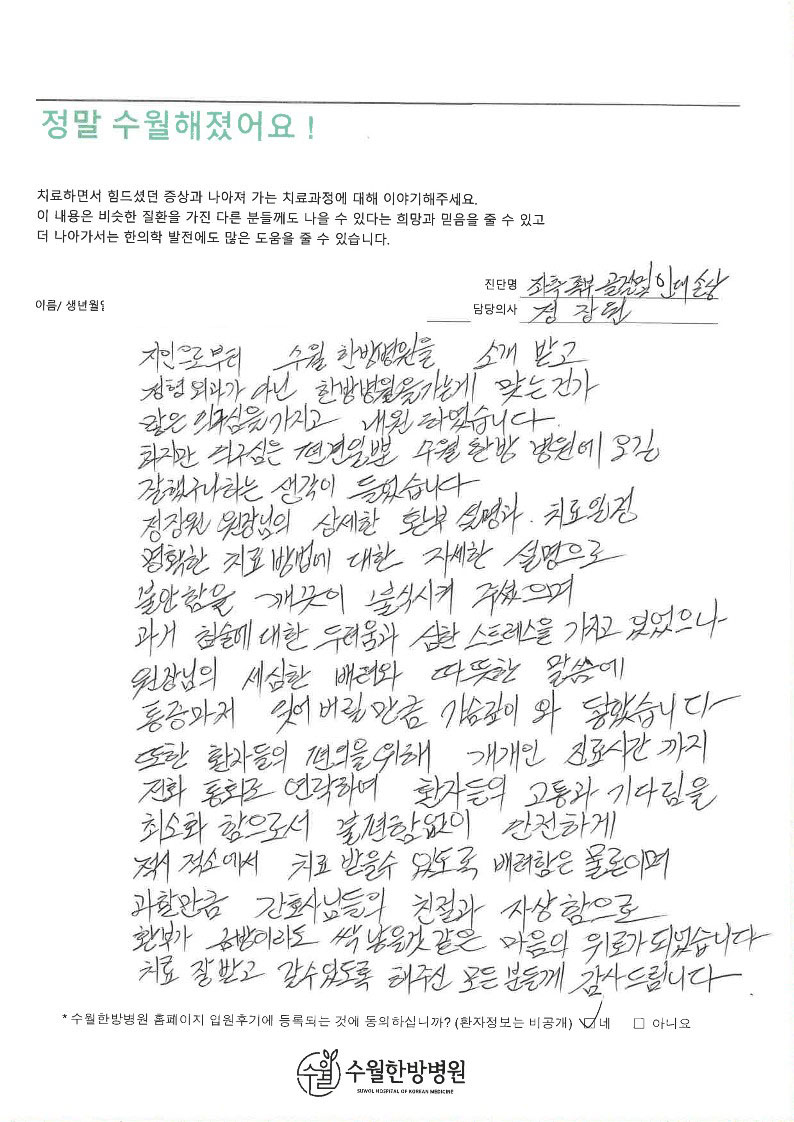 정말 수월해졌어요 !
치료하면서 힘드셨던 증상과 나아져 가는 치료과정에 대해 이야기해주세요.
이 내용은 비슷한 질환을 가진 다른 분들께도 나을 수 있다는 희망과 믿음을 줄 수 있고
더 나아가서는 한의학 발전에도 많은 도움을 줄 수 있습니다.
진단명 좌측 족부 골절및 인대손상
이름/ 생년월일 담당의사 정장원
지인으로부터 수월 한방병원을 소개 받고
정형외과가 아닌 한방병원을가는게 맞는건가
많은 의구심을가지고 내원 하였습니다.
하지만 의구심은 편견일뿐 수월한방 병원에 오길
잘했구나하는 생각이 들었습니다
정장원 원장님의 상세한 환부 설명과 치료일정
명확한 치료방법에 대한 자세한 설명으로
불안함을 깨끗이 불식시켜 주셨으며
과거 침술에대한 두려움과 심한 스트레스을 가지고 있었으나
원장님의 세심한 배려와 따뜻한 말씀에
통증마저 잊어버릴만큼 가슴깊이 와 닿았습니다
또한 환자들의 편의을위해 개개인 진료시간 까지
전화 통화로 연락하며 환자들의 고통과 기다림을
최소화 함으로서 불편함없이 안전하게
적시 적소에서 치료 받을수 있도록 배려함은 물론이며
과할만큼 간호사님들의 친절과 자상함으로
환부가 금방이라도 싹 낳을것 같은 마음의 위로가되었습니다
치료 잘받고 갈수있도록 해주신 모든분들께 감사드립니다.
* 수월한방병원 홈페이지 입원후기에 등록되는 것에 동의하십니까? (환자정보는 비공개) ☑네 □ 아니요
수월 수월한방병원
SUWOL HOSPITAL OF KOREAN MEDICINE